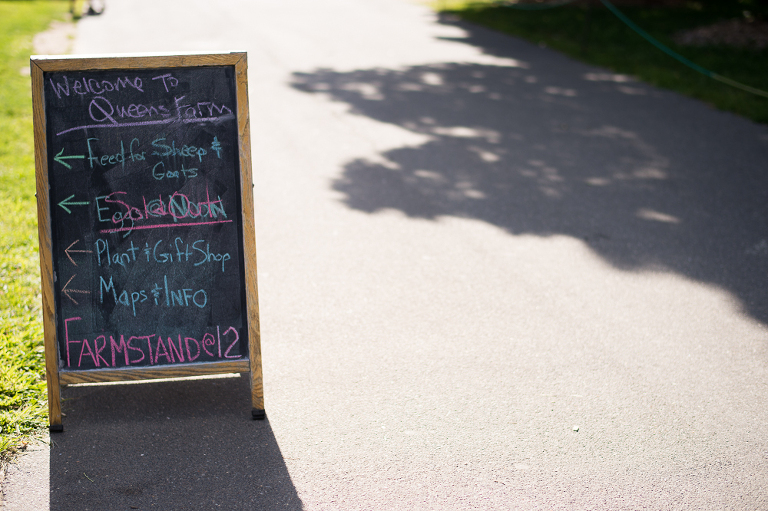 Welcome To
Queens Farm
← Feed for Sheep &
Goats
← Eggs @ Noon
← Plant & Gift Shop
← Maps & INFO
FARMSTAND@12